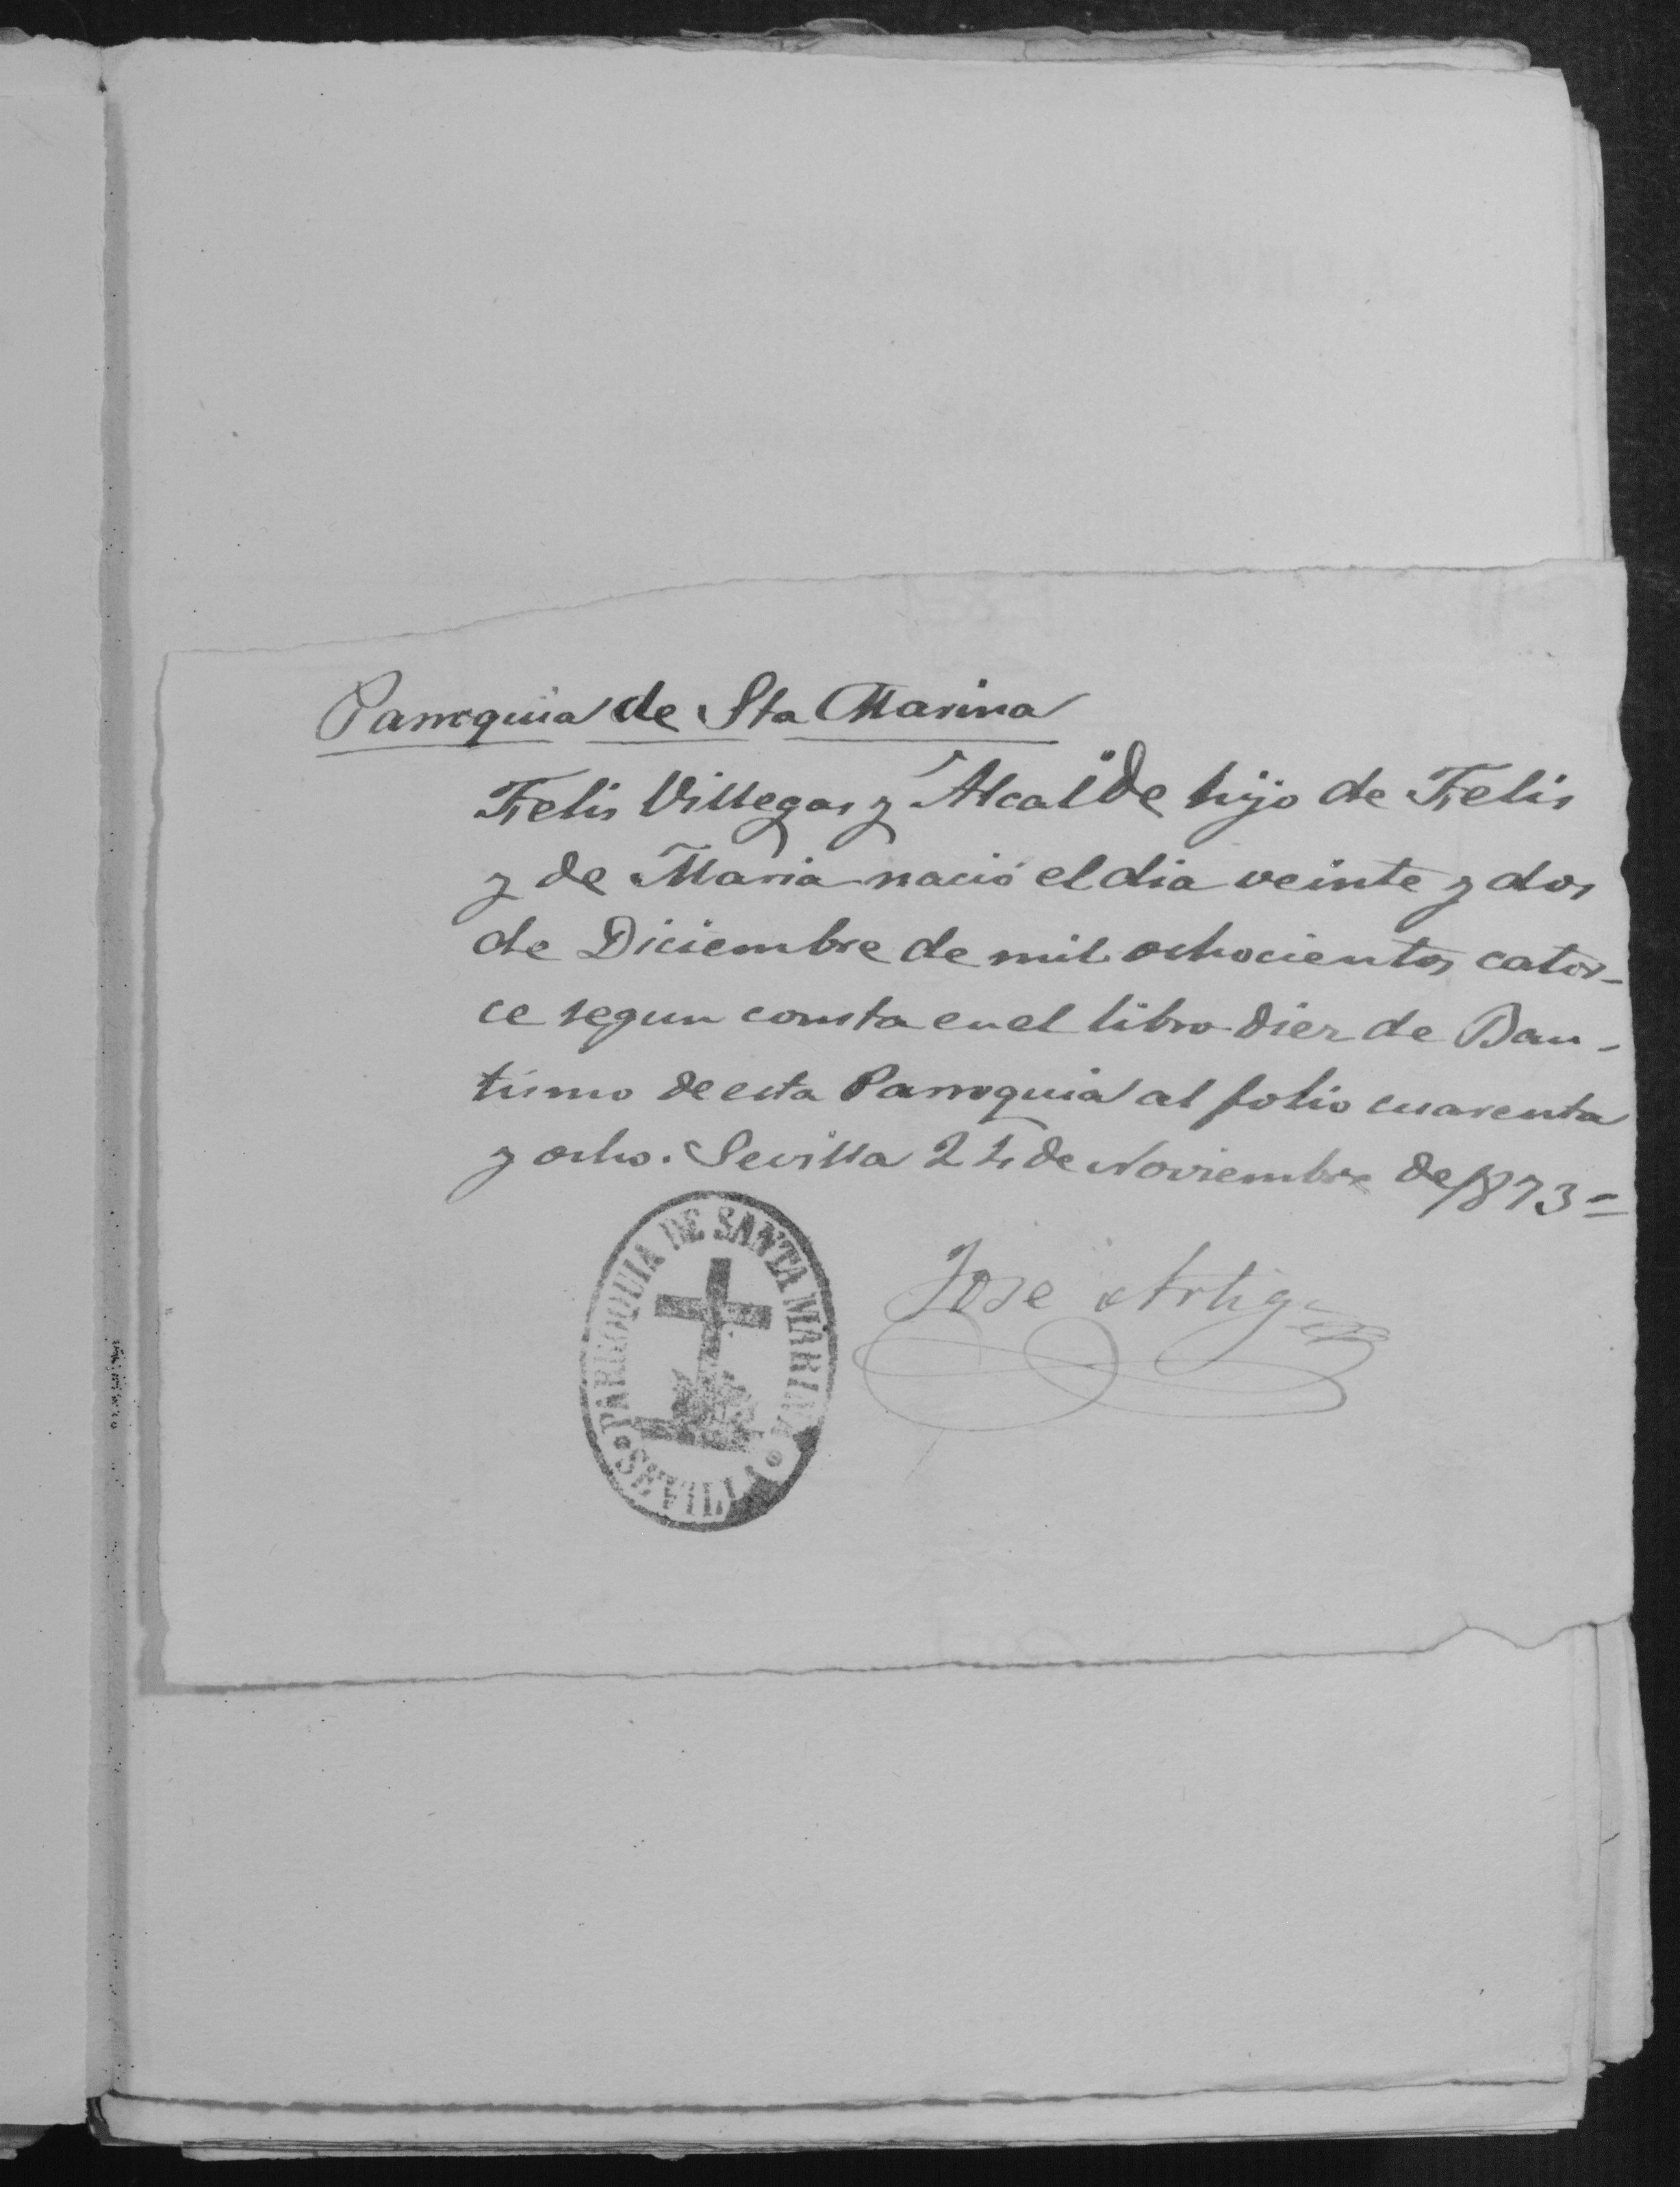 Parroquia de Sta Marina
Felis Villegas y Alcaide hijo de Felis
y de Maria nació el dia veinte y dos
de Diciembre de mil ochocientos cator-
ce segun consta en el libro diez de Bau-
tismo de esta Parroquia al folio cuarenta
y ocho. Sevilla 24 de Noviembre de 1873=
Jose Artiga
PARROQUIA DE SANTA MARINA
SEVILLA